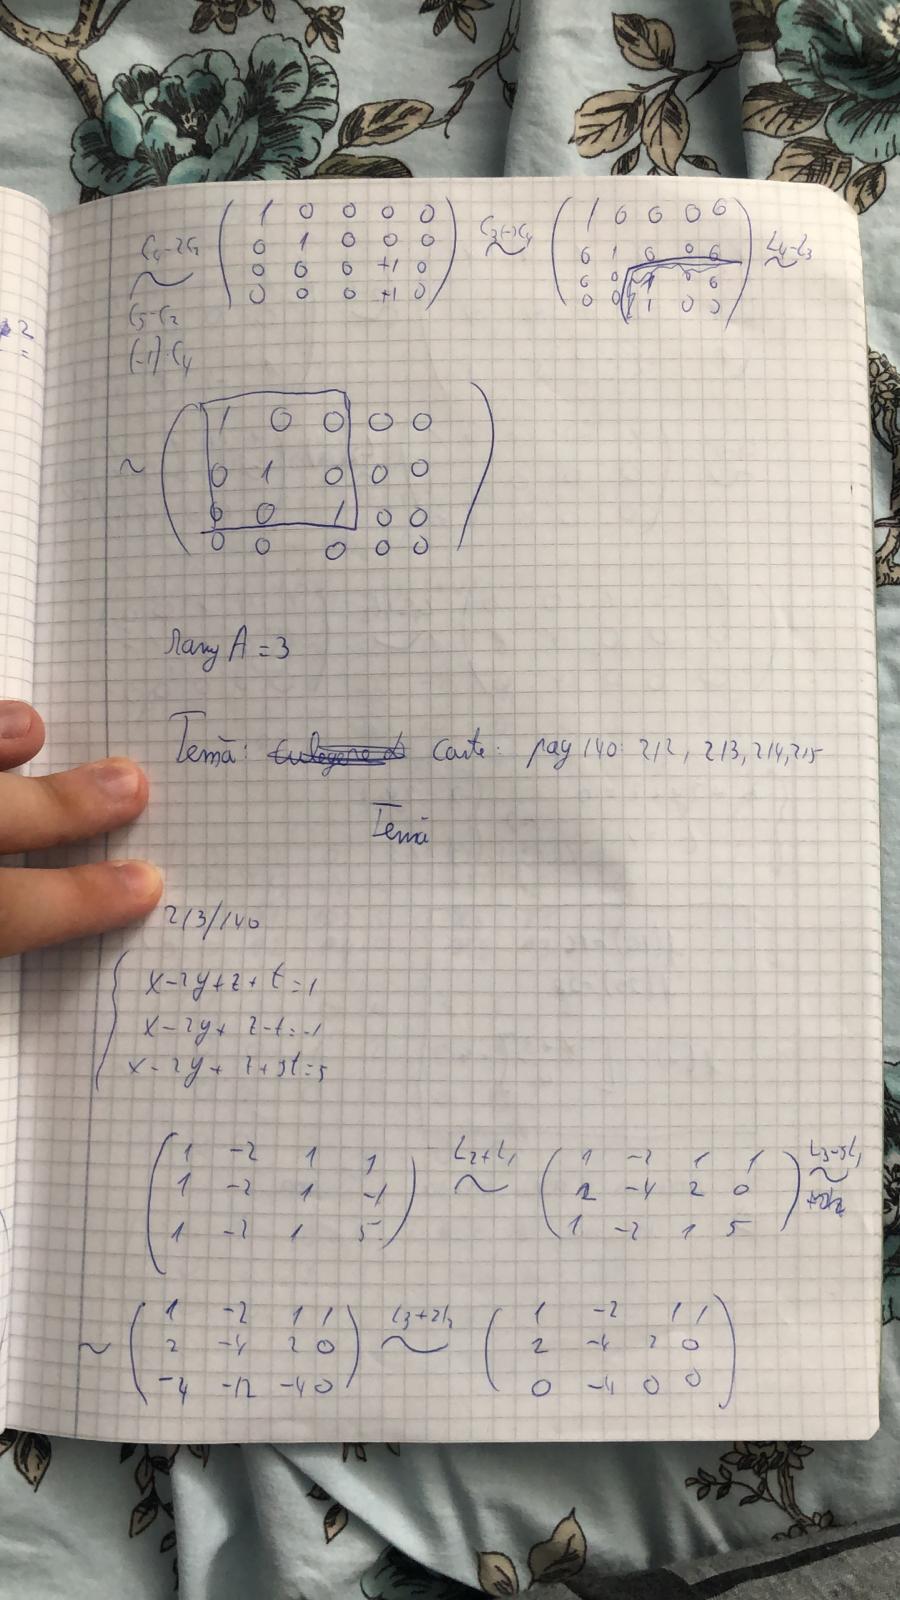 C₄-2C₁
C₅-C₂
(-1)·C₄
( 1 0 0 0 0
0 1 0 0 0
0 0 0 +1 0
0 0 0 +1 0 )
C₃↔C₄
~
( 1 0 0 0 0
0 1 0 0 0
0 0 1 0 0
0 0 1 0 0 )
L₄-L₃
~
~ ( 1 0 0 0 0
0 1 0 0 0
0 0 1 0 0
0 0 0 0 0 )
rang A = 3
Temă: Carte: pag 140: 212, 213, 214, 215
Temă
213/140
{ x-2y+z+t=1
x-2y+z-t=-1
x-2y+z+5t=5
( 1 -2 1 1
1 -2 1 -1
1 -2 1 5 )
L₂+L₁
~
( 1 -2 1 1
2 -4 2 0
1 -2 1 5 )
L₃-5L₁
~
~ ( 1 -2 1 1
2 -4 2 0
-4 -12 -4 0 )
L₃+2L₂
~
( 1 -2 1 1
2 -4 2 0
0 -4 0 0 )